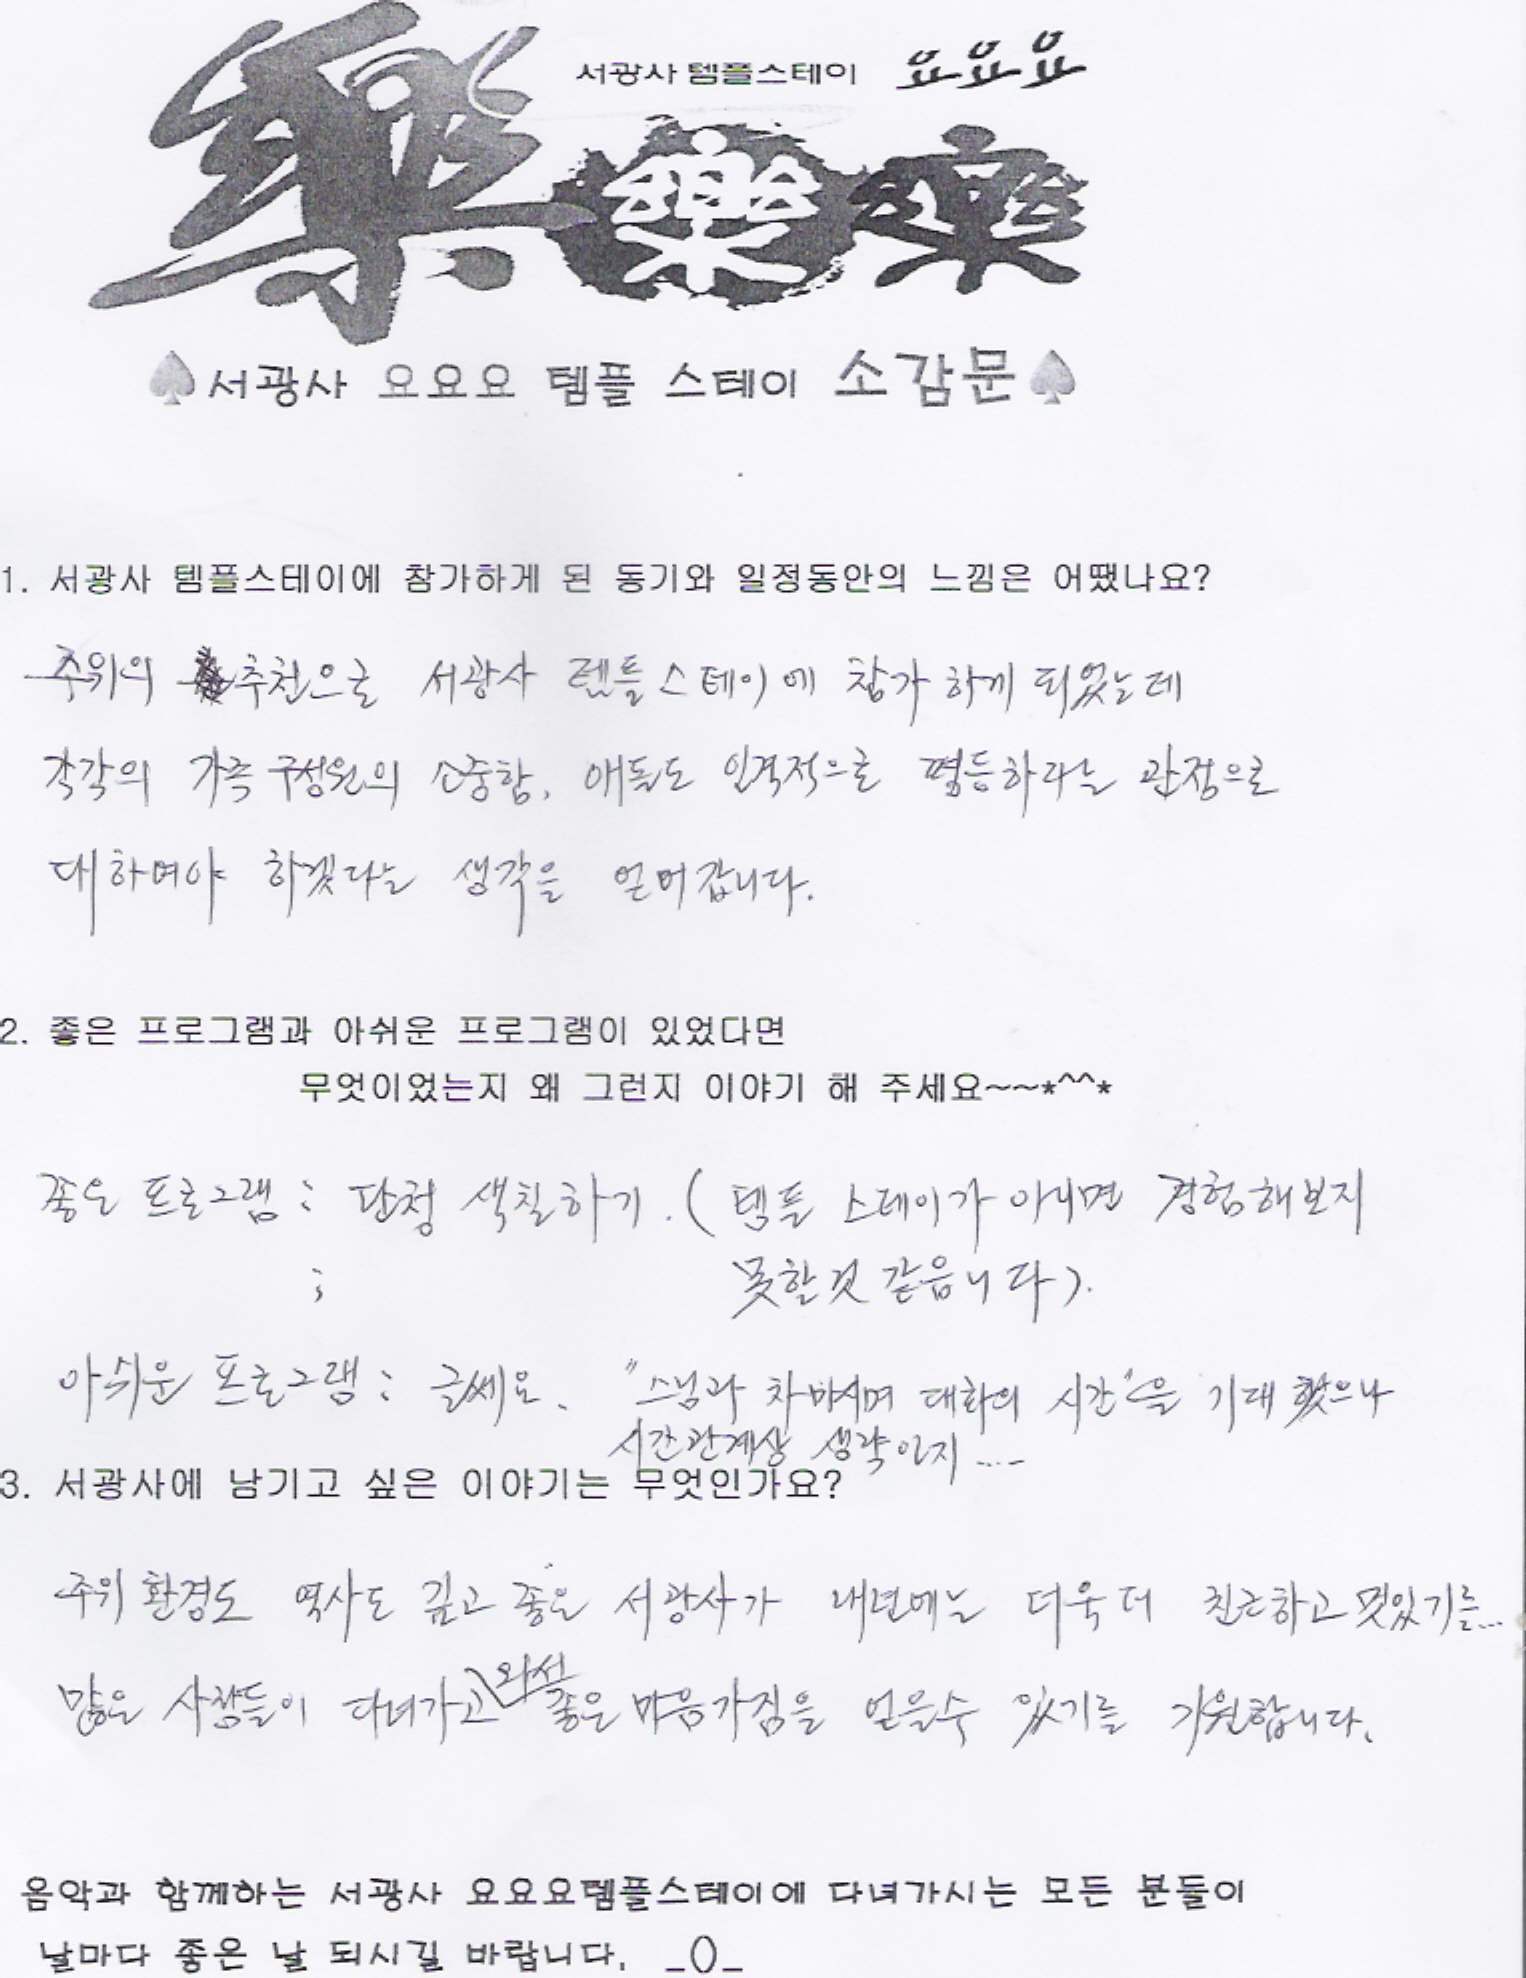 서광사 템플스테이 요요요
樂 樂 樂
서광사 요요요 템플 스테이 소감문
1. 서광사 템플스테이에 참가하게 된 동기와 일정동안의 느낌은 어땠나요?
주위의 추천으로 서광사 템플스테이에 참가하게 되었는데
각각의 가족 구성원의 소중함, 애들도 인격적으로 평등하다는 관점으로
대하며야 하겠다는 생각을 얻어갑니다.
2. 좋은 프로그램과 아쉬운 프로그램이 있었다면
무엇이었는지 왜 그런지 이야기 해 주세요~~*^^*
좋은 프로그램 : 단청 색칠하기. ( 템플 스테이가 아니면 경험해보지
; 못할것 같음니다).
아쉬운 프로그램 : 글쎄요. "스님과 차 마시며 대화의 시간"을 기대 했으나
시간관계상 생략인지 ....
3. 서광사에 남기고 싶은 이야기는 무엇인가요?
주위 환경도 역사도 깊고 좋은 서광사가 내년에는 더욱 더 친근하고 멋있기를...
많은 사람들이 다녀가고 와서 좋은 마음가짐을 얻을수 있기를 기원합니다.
음악과 함께하는 서광사 요요요템플스테이에 다녀가시는 모든 분들이
날마다 좋은 날 되시길 바랍니다. _()_